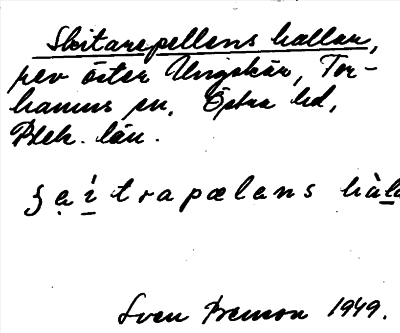 Skitarepellens hallar,
rev öster Ungskär, Tor-
hamns sn. Östra hd,
Blek. län.
ʒ a í t r a p æ l a n s hàla
Sven Benson 1949.